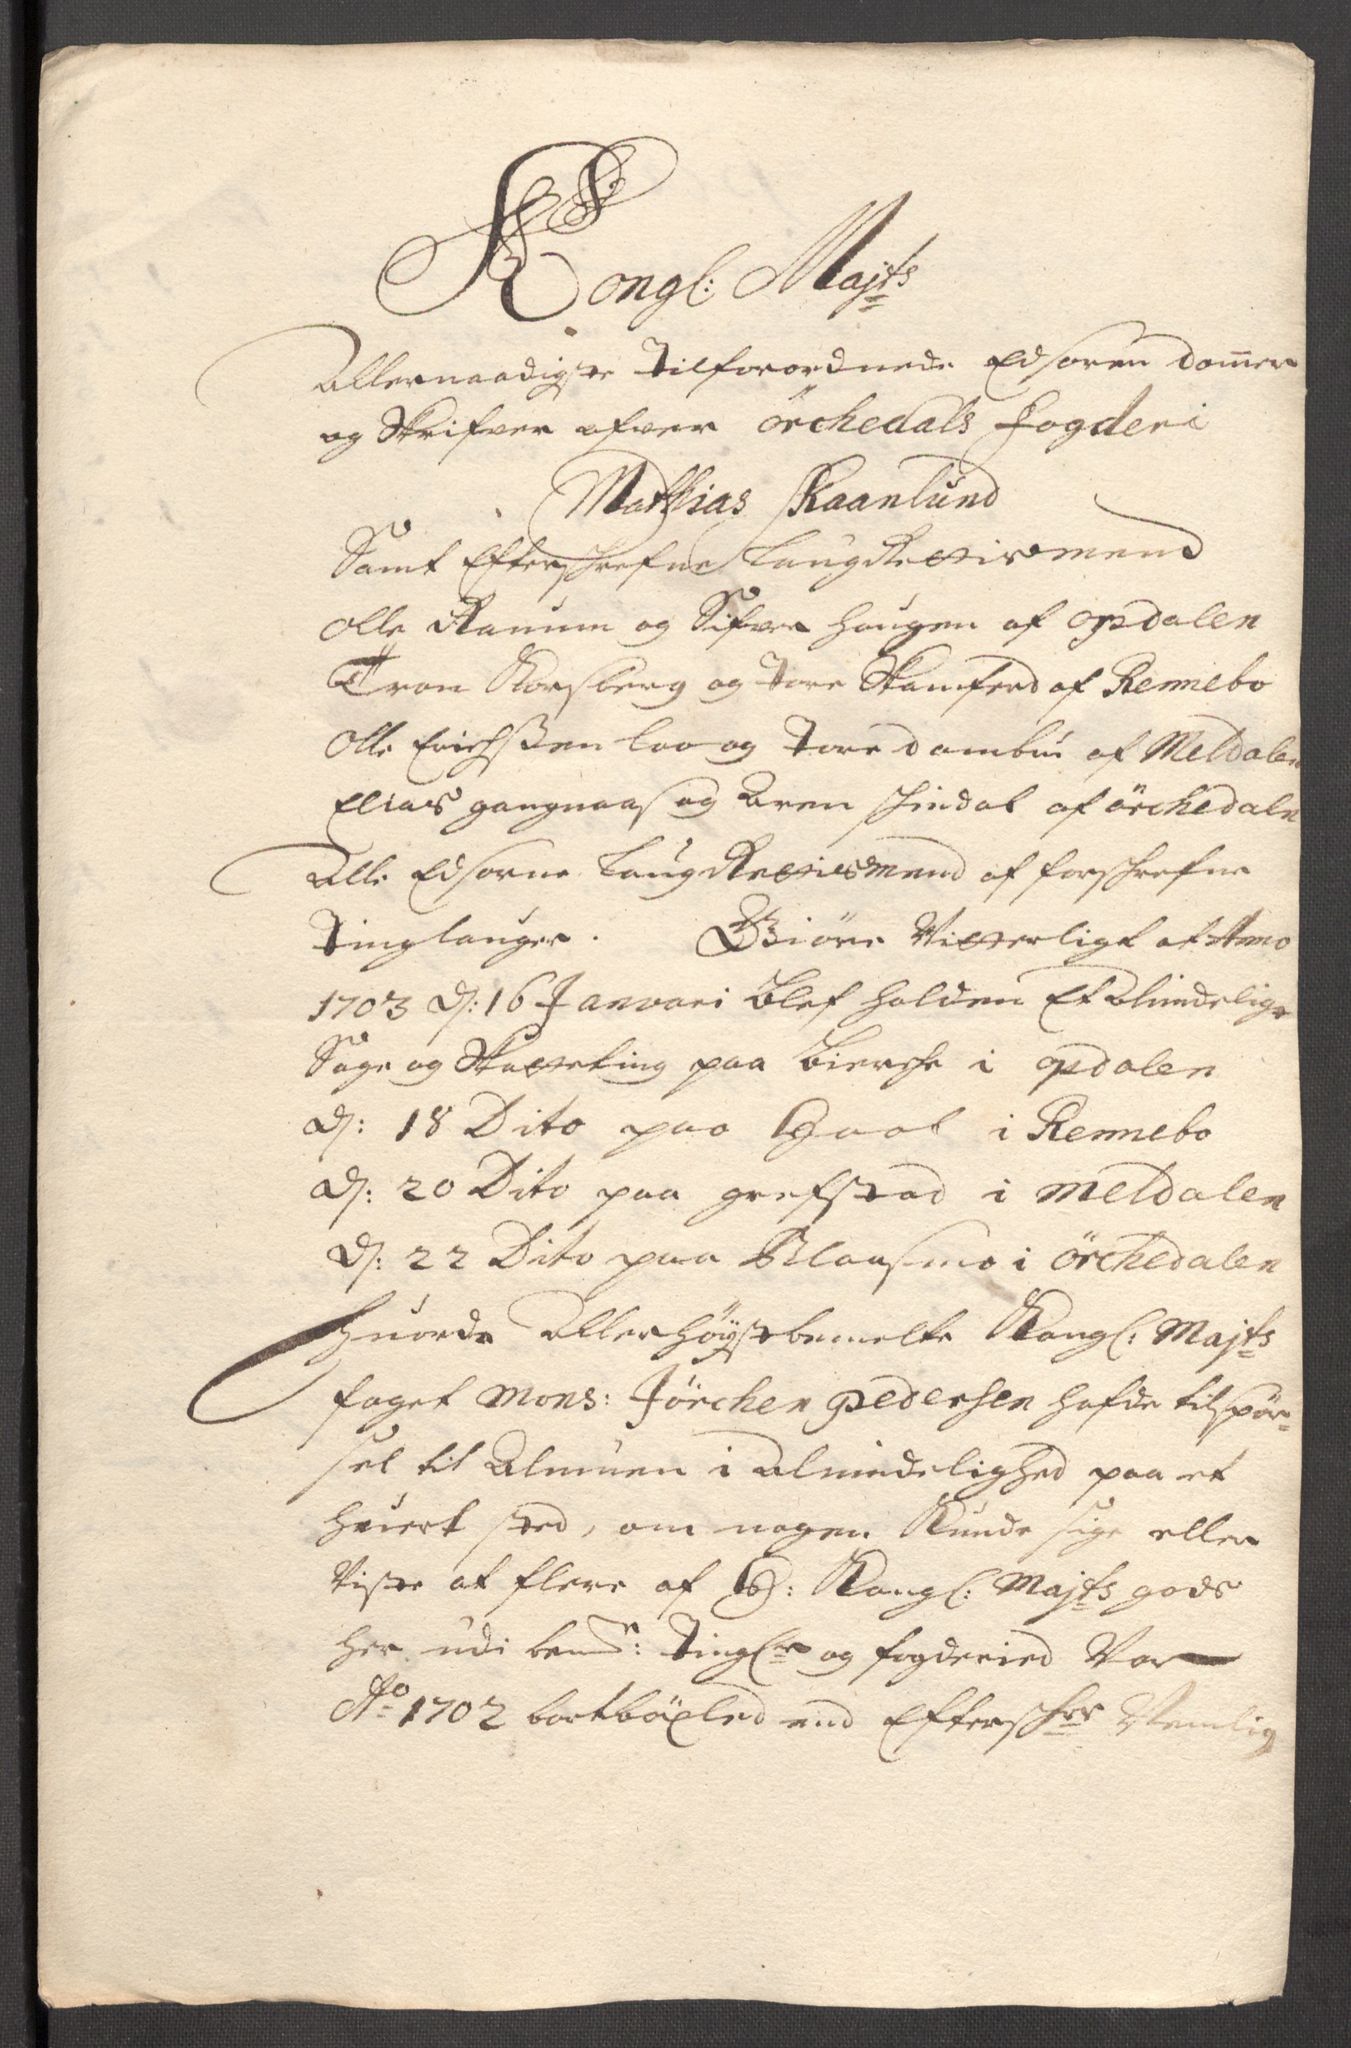 Kongl: Majts
Allernaadigste Tilforordnede Edsoren Dommer
og Skrifver ofver Örchedals Fogderi
Mathias Skaanlund
Samt Efterschrefne Laugrettismend
Olle Ranum og Sifver Haugen af Opdalen
Tron Korsberg og Tore Skamferd af Rennebo
Olle Erichsen Loo og Tore Dombu af Meldalen
Elias Gangnaas og Aren Schindal af Örchedaln
Alle Edsorne Laugrettismend af forschrefne
Tinglauger. Giöre Vitterligt at Anno
1703 d: 16 Januari Blef holden Et Almindelige
Sage og Skatteting paa Bierche i Opdalen
d: 18 Dito paa Gaal i Rennebo
d: 20 Dito paa Grefstad i Meldalen
d: 22 Dito paa Blaasmo i Örchedalen
Huorda Allerhöystbemelte Kongl: Majts
foget Mons: Jörchen Pedersen hafde tilspör-
sel til Almuen i Almindelighed paa et
huert sted, om nogen Kunde sige eller
Viste at flere af h: Kongl: Majts gods
her udi bem: Tingl og fogderied Var
Ao 1702 bortböxled end Efterschr Nemlig